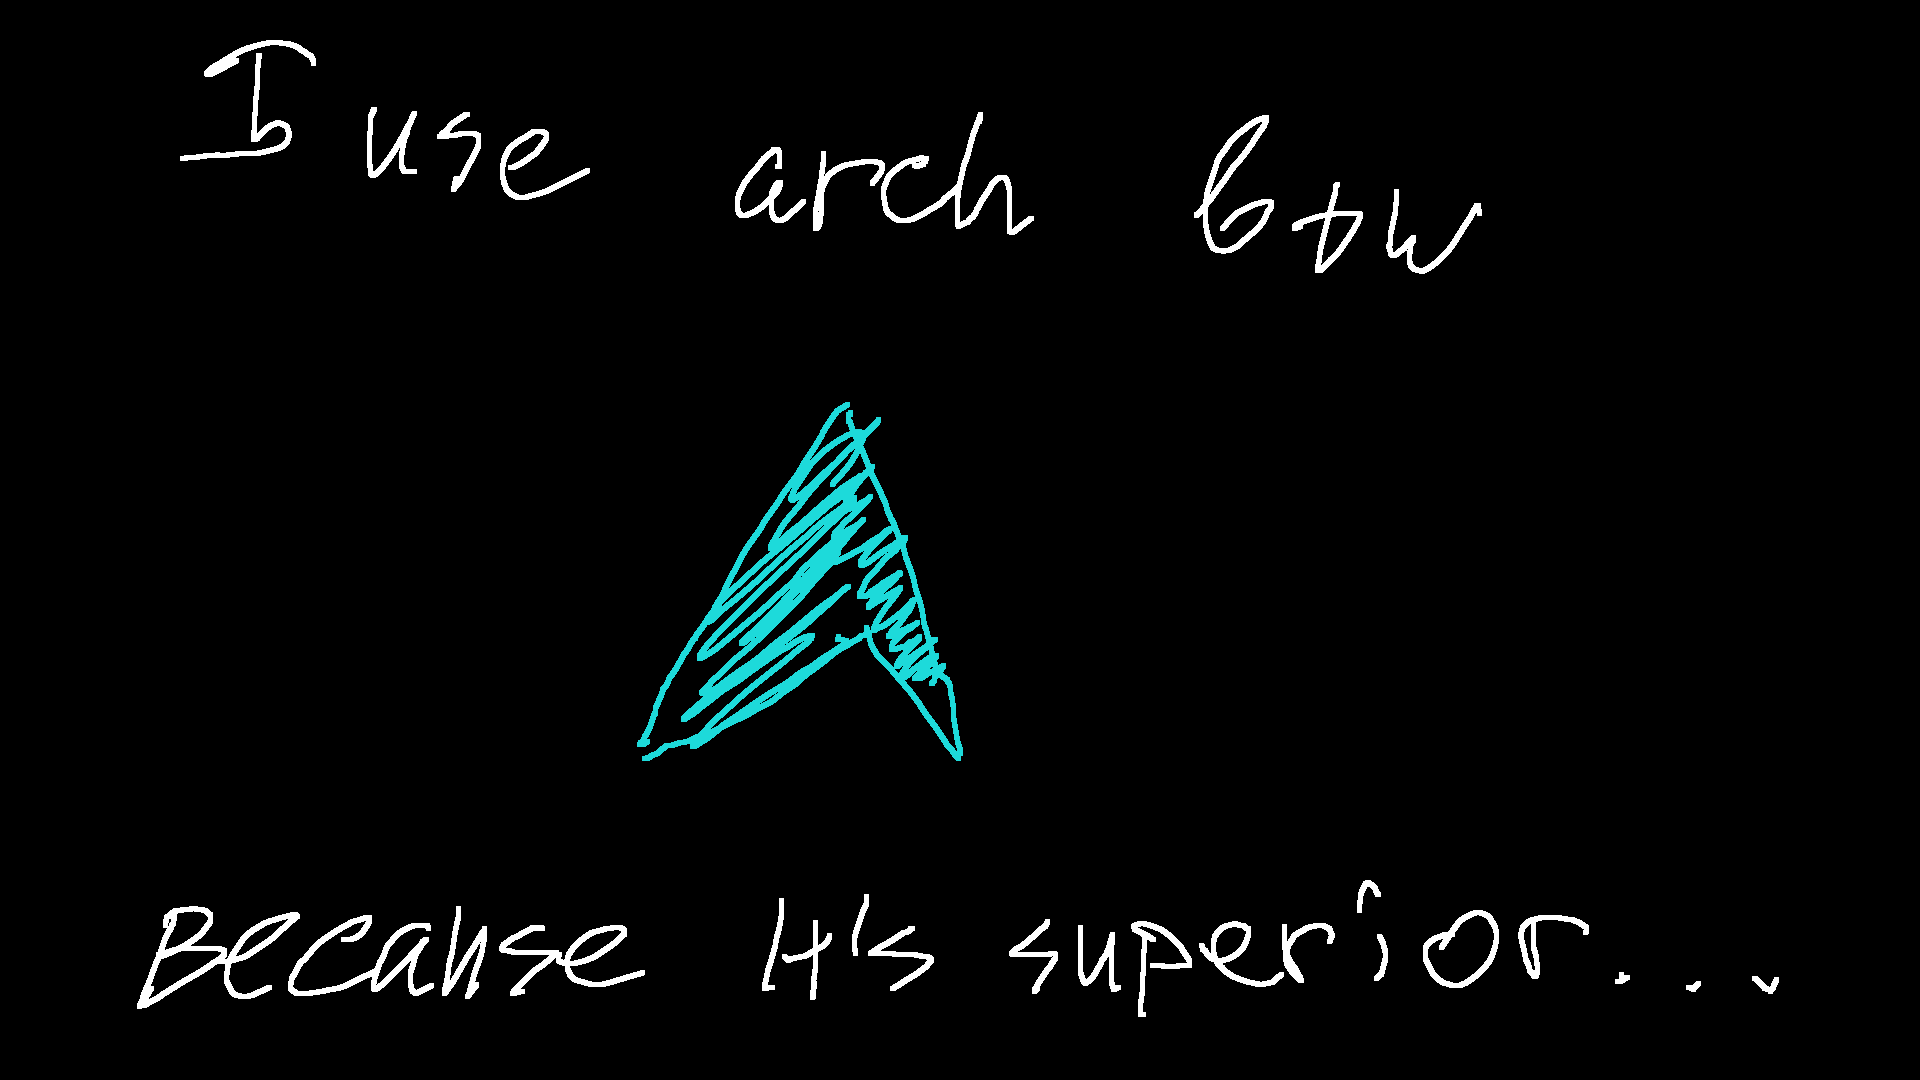 I use arch btw
Because It's superior...